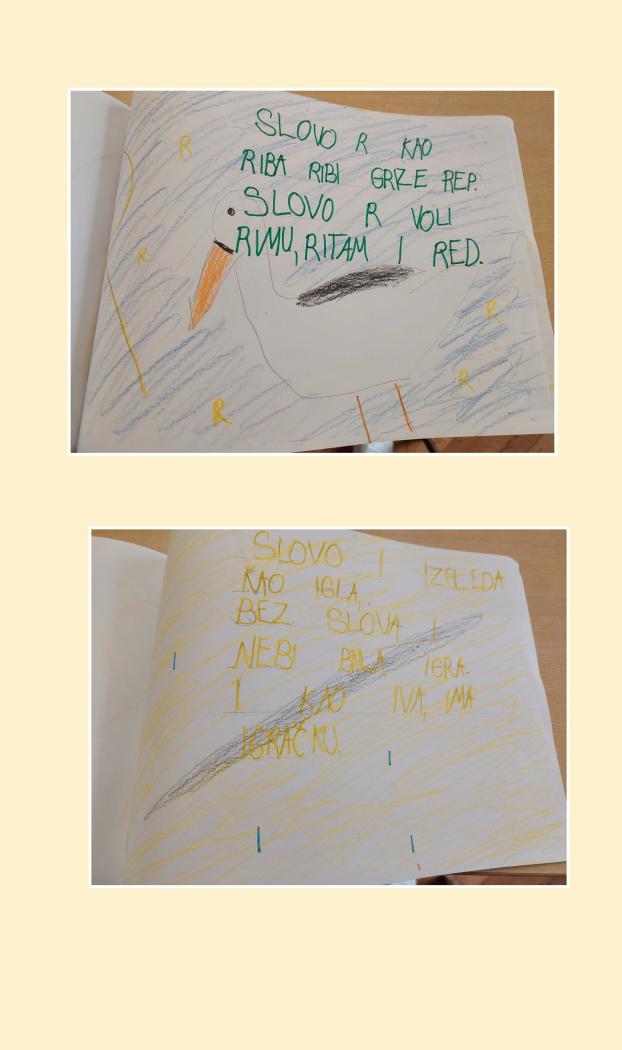 SLOVO R KAO
RIBA RIBI GRIZE REP.
SLOVO R VOLI
RIMU, RITAM I RED.
R
R
R
R
R
SLOVO I IZGLEDA
KAO IGLA,
BEZ SLOVA I
NEBI BILA IGRA.
I KAO IVA, IMA
IGRAČKU.